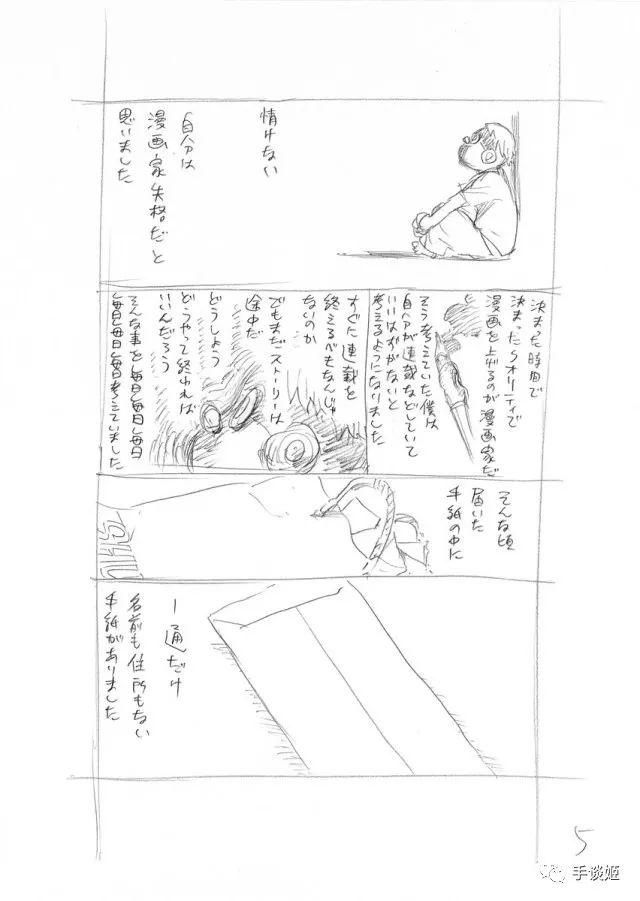 情けない
自分は
漫画家失格だと
思いました
決まった時間で
決まったクオリティで
漫画を上げるのが漫画家だ
そう考えていた僕は
自分が連載などしていて
いいはずがないと
考えるようになりました
すぐに連載を
終えるべきなんじゃ
ないのか
でもまだストーリーは
途中だ
どうしよう
どうやって終われば
いいんだろう
そんな事を毎日毎日毎日
毎日毎日毎日考えていました
そんな頃
届いた
手紙の中に
一通だけ
名前も住所もない
手紙がありました
5
手谈姬